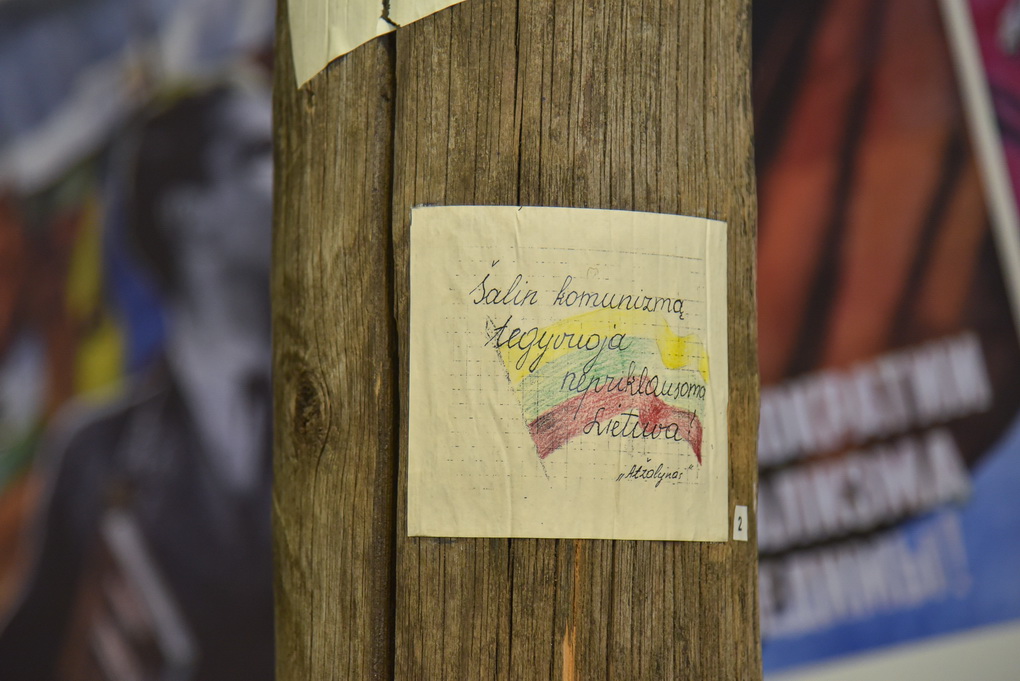 Šalin komunizmą
tegyvuoja
nepriklausoma
Lietuva!
„Atžalynas"
2
ЕДИНЫ!